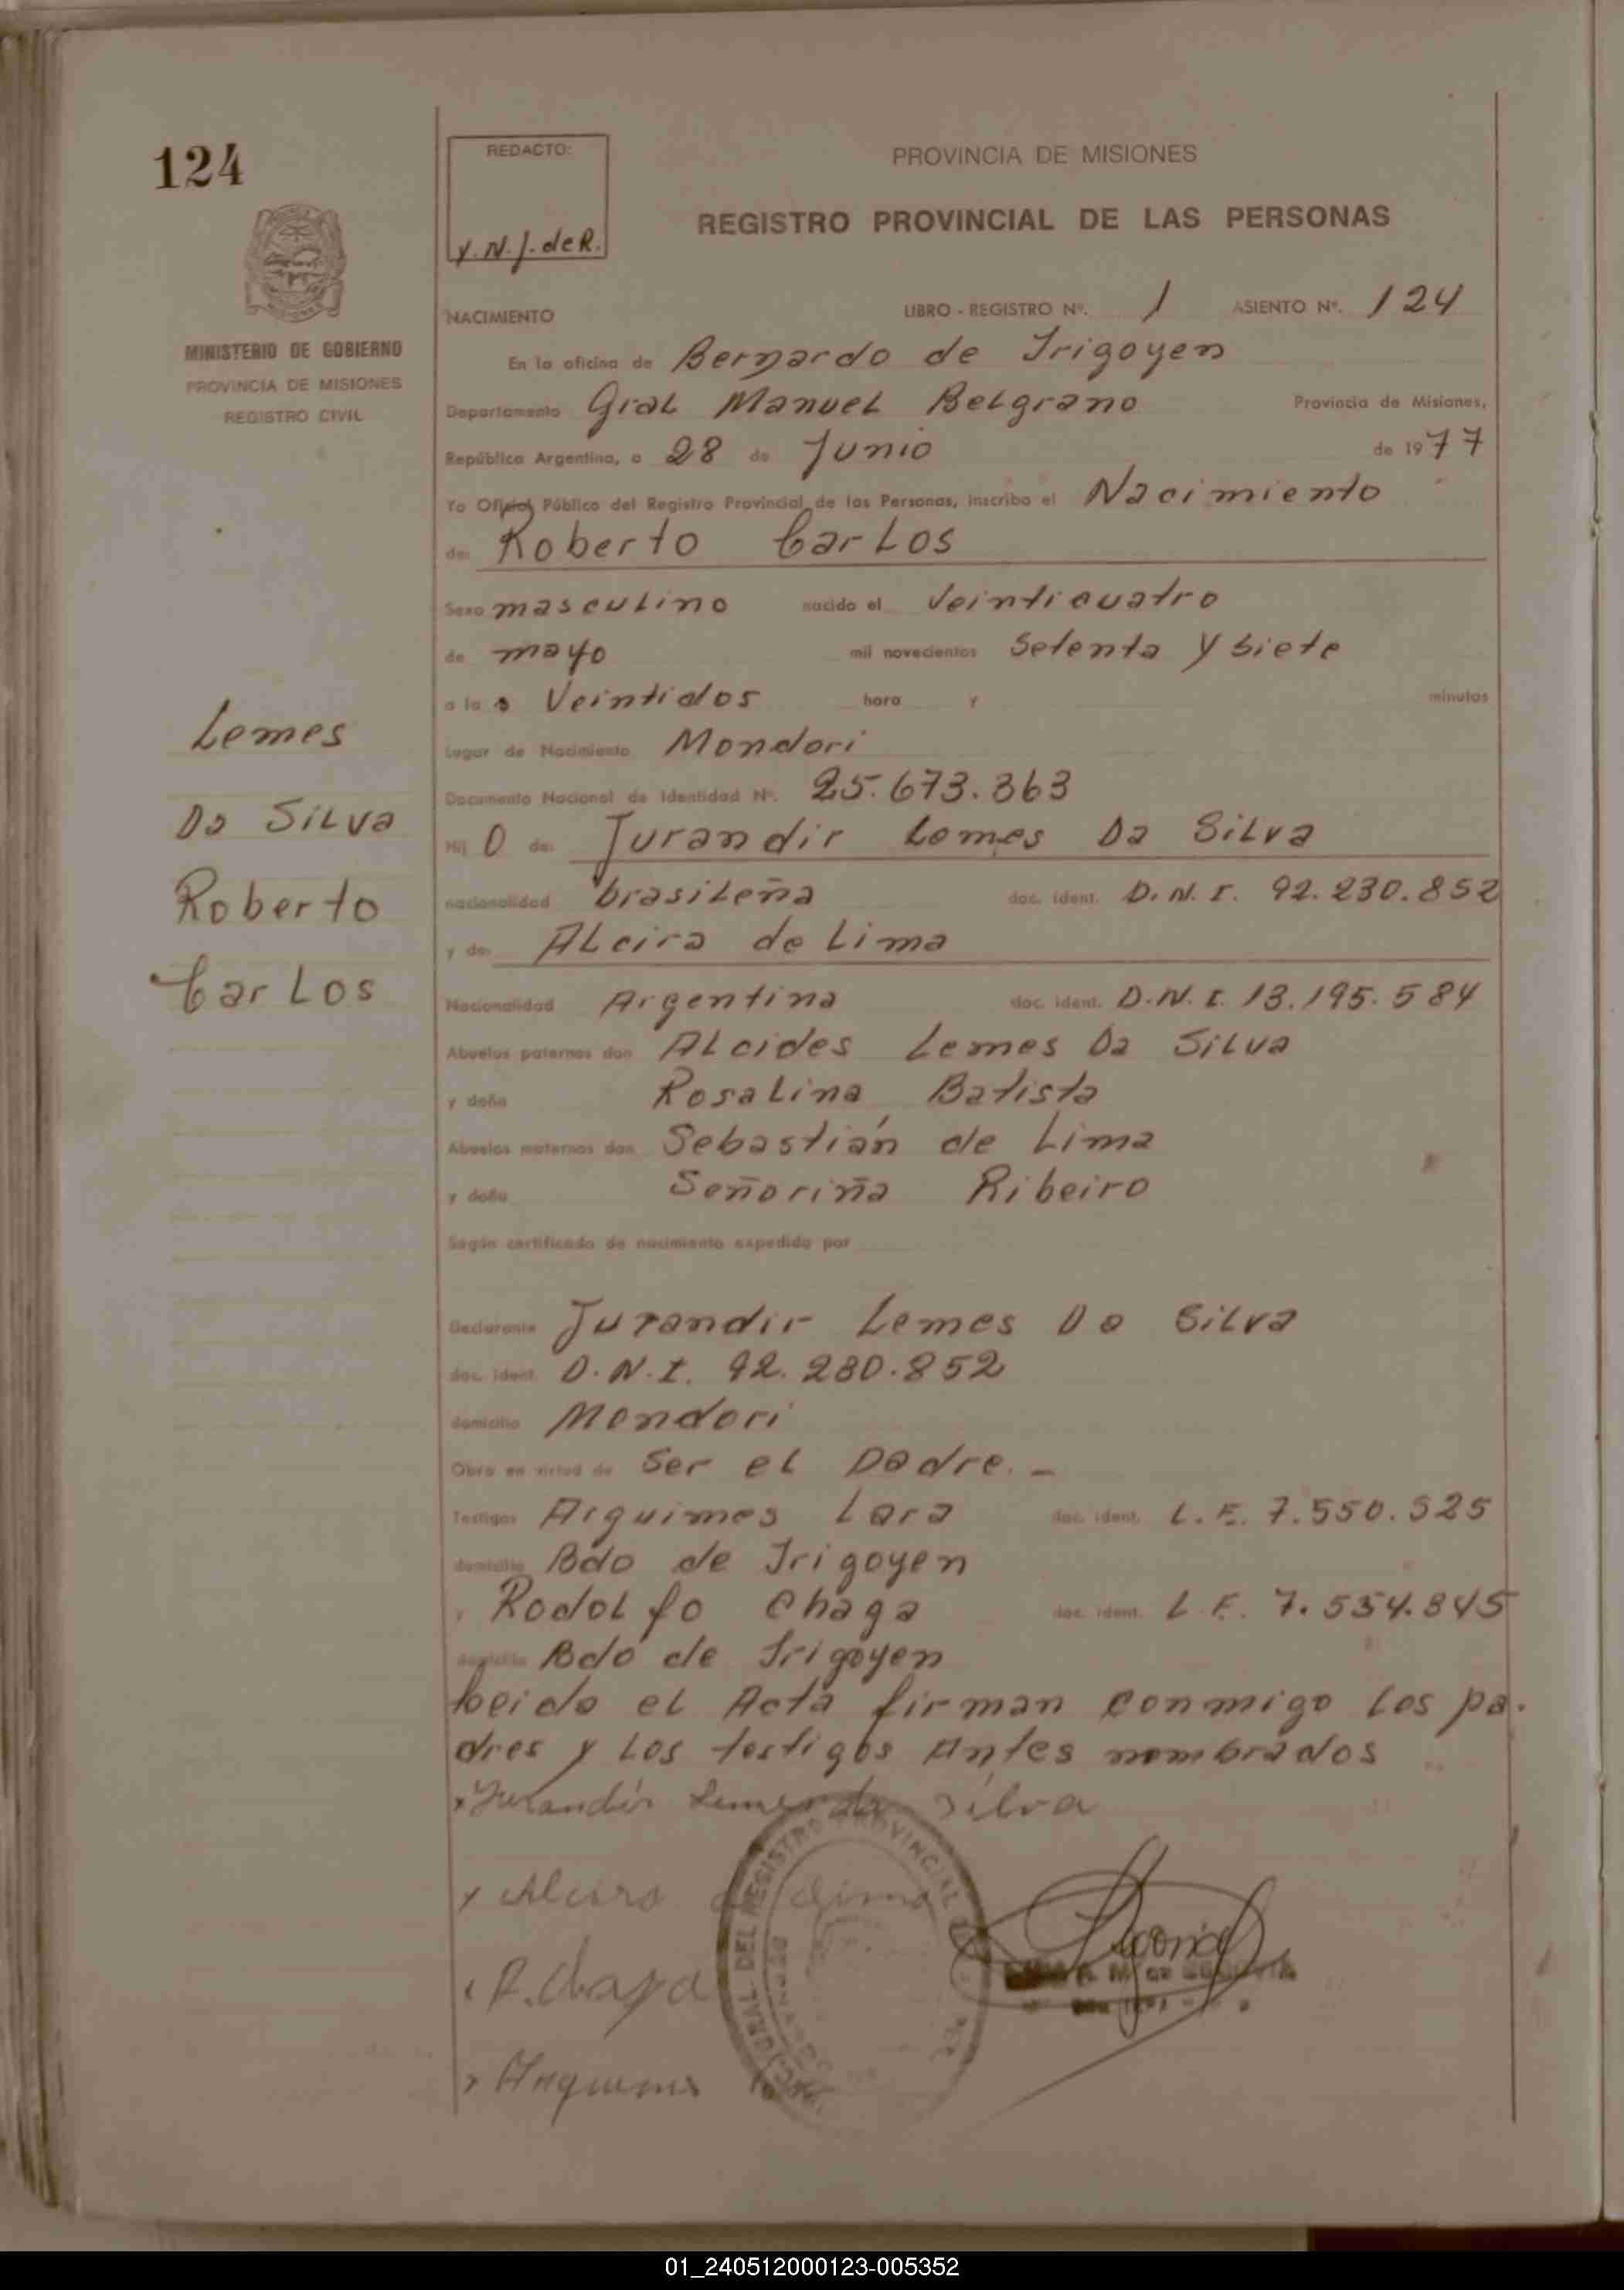 124
REDACTO:
Y.N.J. de R.
PROVINCIA DE MISIONES
REGISTRO PROVINCIAL DE LAS PERSONAS
MINISTERIO DE GOBIERNO
PROVINCIA DE MISIONES
REGISTRO CIVIL
NACIMIENTO LIBRO - REGISTRO Nº. 1 ASIENTO Nº. 124
En la oficina de Bernardo de Irigoyen
Departamento Gral Manuel Belgrano Provincia de Misiones,
República Argentina, a 28 de Junio de 1977
Yo Oficial Público del Registro Provincial de las Personas, inscribo el Nacimiento
de: Roberto Carlos
Sexo masculino nacido el Veinticuatro
de mayo mil novecientos Setenta y siete
a las Veintidos hora y minutos
Lugar de Nacimiento Mondori
Documento Nacional de Identidad Nº. 25.673.363
Hijo de: Jurandir Lemes Da Silva
nacionalidad brasileña doc. ident. D.N.I. 92.230.852
y de: Alcira de Lima
Nacionalidad Argentina doc. ident. D.N.I. 13.195.584
Abuelos paternos don Alcides Lemes Da Silva
y doña Rosalina Batista
Abuelos maternos don Sebastián de Lima
y doña Señoriña Ribeiro
Según certificado de nacimiento expedido por
Declarante Jurandir Lemes Da Silva
doc. ident. D.N.I. 92.230.852
domicilio Mondori
Obra en virtud de Ser el padre. -
Testigos Arquimes Lara doc. ident. L.E. 7.550.525
domicilio Bdo de Irigoyen
y Rodolfo Chaga doc. ident. L.E. 7.554.845
domicilio Bdo de Irigoyen
Leida el Acta firman conmigo los pa.
dres y los testigos Antes nombrados
Jurandir Lemes da Silva
Alcira de Lima
R. Chaga
Arquimes
DEL REGISTRO PROVINCIAL
Lemes
Da Silva
Roberto
Carlos
01_240512000123-005352